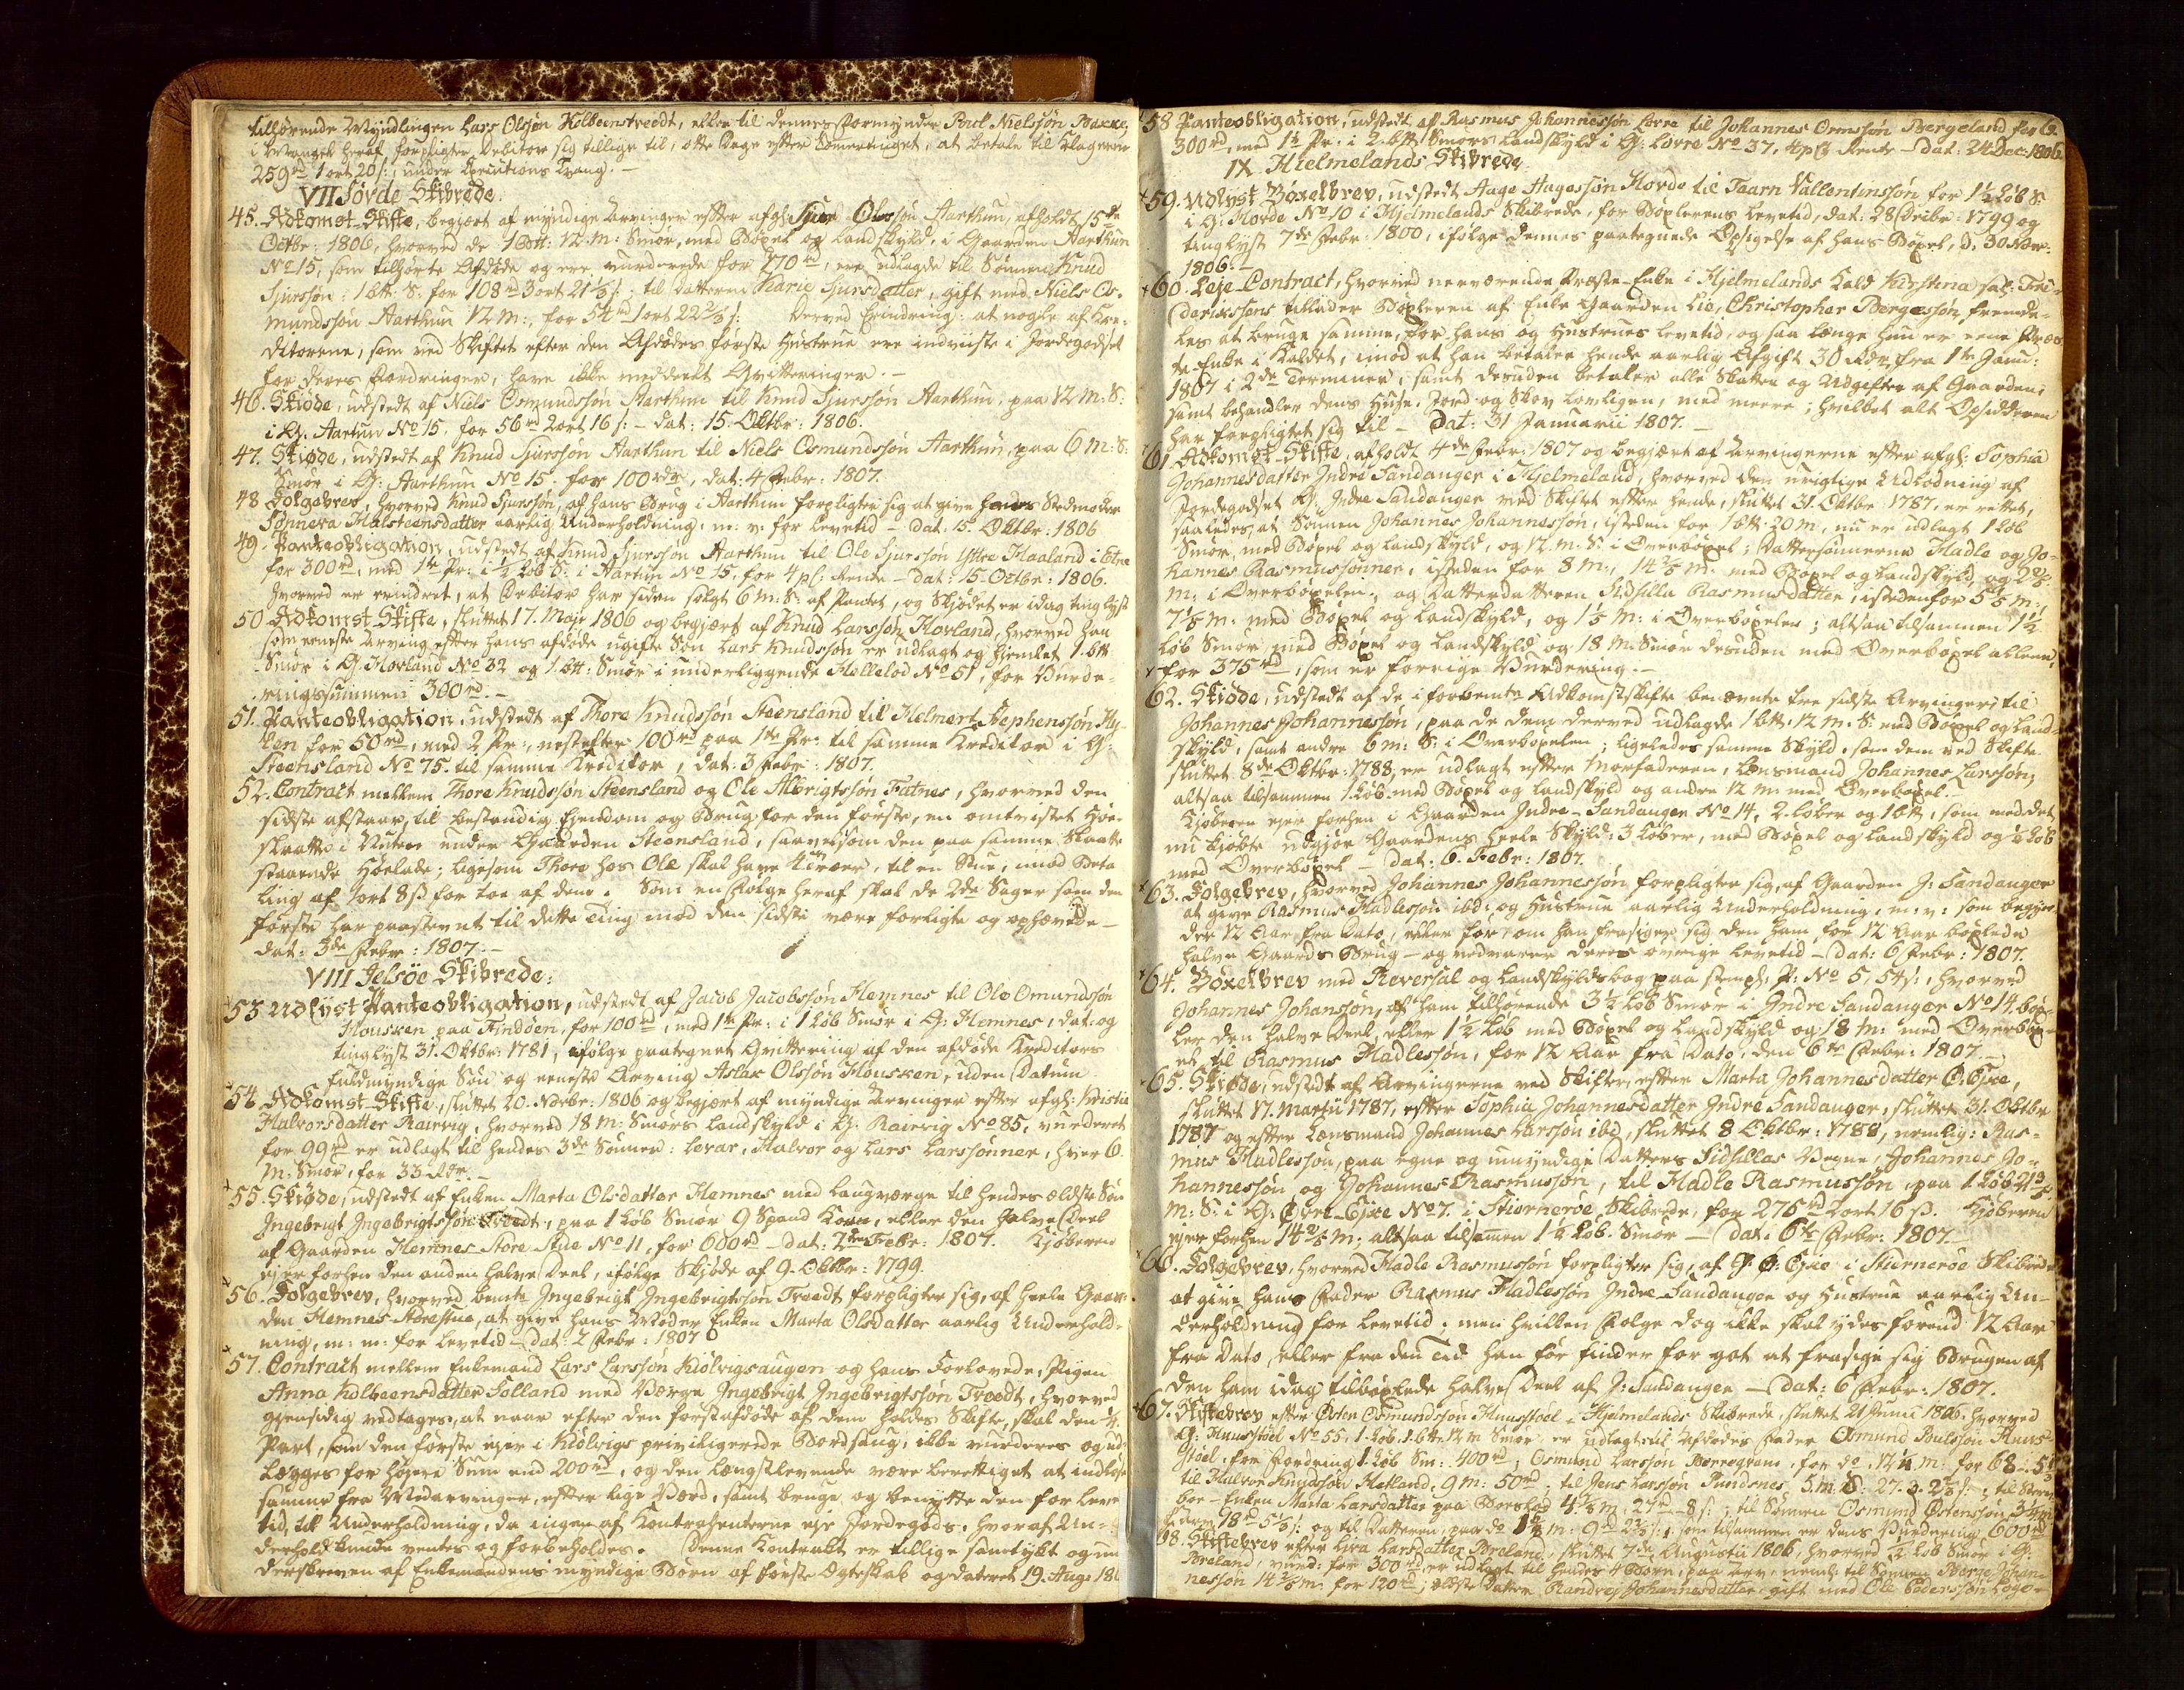 tilhørende Myndlingen Lars Olsøn Kolbeenstveedt, eller til dennes Formynder Poul Nielsøn Bakke,
i Mangel heraf forpligter Debitor sig tillige til, otte Dage efter Sommertinget, at betale til Klageren
259 rd 1 ort 20 s:, under Executions Tvang. –
VII Søvde Skibrede.
45. Adkomst-Skifte, begjært af myndige Arvinger efter afg: Sjur Olssøn Aarthun, afholdt 15de
Octbr: 1806, hvorved de 1 Btt: 12 m: Smør, med Bøxel og Landskyld, i Gaarden Aarthun
No 15, som tilhørte Afdøde og ere vurderede for 270 rd, ere udlagde til Sønnen Knud
Sjurssøn: 1 btt. S: for 108 rd 3 ort 21 1/3 s:; til Datteren Karie Sjursdatter, gift med Niels Os-
mundssøn Aarthun 12 m:, for 54 rd 1 ort 22 2/3 s: Derved Erindring: at nogle af Kre-
ditorene, som ved Skiftet efter den Afdødes første Hustrue ere indviiste i Jordegodset
for deres Fordringer, have ikke meddeelt Qvitteringer. –
46. Skiøde, udstedt af Niels Osmundssøn Aarthun til Knud Sjurssøn Aarthun, paa 12 m: S:
i G: Aartun No 15. for 56 rd 2 ort 16 s: – dat: 15. Oktbr: 1806.
47. Skiøde, udstedt af Knud Sjurssøn Aarthun til Niels Osmundssøn Aarthun, paa 6 m: S:
Smør i G: Aarthun No 15. for 100 rdr, dat: 4 Febr: 1807.
48 Folgebrev, hvorved Knud Sjurssøn, af hans Brug i Aarthun forpligter sig at give hans Stedmoder
Sønneva Halsteensdatter aarlig Underholdning. m: v: for Levetid – dat. 15. Oktbr: 1806
49. Panteobligation, udstedt af Knud Sjurssøn Aarthun til Ole Sjurssøn Yttre Haaland i Etne
for 300 rd, med 1te Pr: i 1/2 Løb S: i Aartun No 15. for 4 pC: Rente – dat: 15. Octbr: 1806.
hvorved er erindret, at Debitor har siden solgt 6 m: S: af Pantet, og Skjødet er idag tinglyst
50. Adkomst-Skifte, sluttet 17. Maje 1806 og begjært af Knud Larssøn Hovland, hvorved han
som eeneste Arving efter hans afdøde ugifte Søn Lars Knudssøn er udlagt og hjemlet 1. btt
Smør i G: Hovland No 32 og 1. btt: Smør i underliggende Møllelod No 51, for Vurde-
ringssummen 300 rd. –
51. Panteobligation, udstedt af Thore Knudssøn Steensland til Helmert Stephenssøn Hy-
len for 50 rd, med 2 Pr:, nest efter 100 rd paa 1te Pr: til samme Kreditor i G:
Steensland No 75. til samme Kreditor, dat: 3 Febr: 1807.
52. Contract mellem Thore Knudssøn Steensland og Ole Albrigtssøn Fatnes, hvorved den
sidste afstaar, til bestandig Eyendom og Brug for den første, en omtvistet Høe-
slaatte i Nuten under Gaarden Steensland, saavelsom den paa samme Slaatte
staaende Høelade; ligesom Thore hos Ole skal have 4 Træer, til en Stue, imod Beta
ling af 1 ort 8 s for toe af dem. Som en Følge heraf skal de 2de Sager som den
første har paastevnt til dette Ting mod den sidste være forligte og ophævede –
dat: 3de Febr: 1807. –
VIII Jelsøe Skibrede:
53 Udlyst Panteobligation, udstedt af Jacob Jacobssøn Hemnes til Ole Omundssøn
Housken paa Findøen, for 100 rd, med 1te Pr: i 1 Løb Smør i G: Hemnes, dat: og
tinglyst 31. Oktbr: 1781, ifølge paategnet Qvittering af den afdøde Kreditors
fuldmyndige Søn og eeneste Arving Aslak Olsøn Housken, uden Datum
54. Adkomst-Skifte, sluttet 20. Novbr: 1806 og begjært af myndige Arvinger efter afg: Kristie
Halvorsdatter Raievig, hvorved 18 m: Smørs Landskyld i G: Raievig No 85, vurderet
for 99 rd er udlagt til hendes 3de Sønner: Levar, Halvor og Lars Larssønner, hver 6
m: Smør, for 33 Rdr. –
55. Skiøde, udstedt af Enken Marta Olsdatter Hemnes med Laugværge til hendes ældste Søn
Ingebrigt Ingebrigtssøn Tveedt, paa 1 Løb Smør 9 Spand Korn, eller den halve Deel
af Gaarden Hemnes Store Stue No 11, for 600 rd – dat: 2den Febr: 1807. Kjøberen
ejer forhen den anden halve Deel, ifølge Skjøde af 9. Oktbr: 1799.
56. Folgebrev, hvorved bemte Ingebrigt Ingebrigtssøn Tveedt forpligter sig, af heele Gaar-
den Hemnes Storestue, at give hans Moder Enken Marta Olsdatter aarlig Underhold-
ning, m: m: for Levetid – Dat: 2 Febr: 1807
57. Contract mellem Enkemand Lars Larssøn Kiølvigsaugen og hans Forlovede, Pigen
Anna Kolbeensdatter Folland med Værge Ingebrigt Ingebrigtssøn Tveedt, hvorved
gjensidig vedtages, at naar efter den førstafdøde af dem holdes Skifte, skal den 1/4
Part, som den første ejer i Kiølvigs priviligerede Bordsaug, ikke vurderes og ud-
lægges for højere Sum end 200 rd, og den længstlevende være berettiget at indløse
samme fra Medarvinger, efter lige Værd, samt bruge og benytte den for Leve
tid, til Underholdning, da ingen af Kontrahenterne eje Jordegods, hvoraf Un-
derhold kunde ventes og forbeholdes. Denne Kontrakt er tillige samtykt og un
derskreven af Enkemandens myndige Børn af første Ægteskab og dateret 19. Aug: 180
58 Panteobligation, udstedt af Rasmus Johannessøn Lovre til Johannes Ormssøn Bergeland for
300 rd, med 1te Pr: i 2. btt: Smørs Landskyld i G: Lovre No 37, 4 pC Rente – dat: 24 Dec: 1806.
IX. Hielmelands Skibrede
59. Udlyst Bøxelbrev, udstedt Aage Aagessøn Hovde til Taarn Vallentinssøn for 1 1/2 Løb S:
i G: Hovde No 10 i Hjelmelands Skibrede, for Bøxlerens Levetid, dat: 28 Octbr: 1799 og
tinglyst 7de Febr: 1800, ifølge dennes paategnede Opsigelse af hans Bøxel, d: 30 Nov-
1806. –
60. Leje-Contract, hvorved nerværende Præste-Enke i Hjelmelands Kald Kirstina sal: Fri-
derikssens tillader Bøxleren af Enke Gaarden Lie, Christopher Bergessøn, fremde-
les at bruge samme, for hans og Hustrues Levetid, og saa længe hun er eene Præs-
te-Enke i Kaldet, imod at han betaler hende aarlig Afgift 30 Rdr, fra 1te Janu:
1807 i 2de Terminer, samt desuden betaler alle Skatter og Udgifter af Gaarden,
samt behandler dens Huse, Jord og Skov lovligen, med meere; hvilket alt Opsidderen
har forpligtet sig til – dat: 31 Januarii 1807. –
61. Adkomst-Skifte, afholdt 4de Febr: 1807 og begjært af Arvingerne efter afg: Sophia
Johannesdatter Indre Sandanger i Hjelmeland, hvorved den urigtige Udlodning af
Jordegodset G: Indre Sandanger ved Skiftet efter hende, sluttet 31. Oktbr 1787, er rettet,
saaledes, at Sønnen Johannes Johannessøn, isteden for 1 btt: 20 m, nu er udlagt 1 Løb
Smør, med Bøxel og Landskyld, og 12. m: S: i Overbøxel; Dattersønnerne Hadle og Jo-
hannes Rasmussønner, isteden for 8 m:, 14 2/5 m: med Bøxel og Landskyld, og 2 2/5
m: i Overbøxelen; og Datterdatteren Sidsilla Rasmusdatter, istedenfor 5 1/3 m:,
7 1/5 m: med Bøxel og Landskyld, og 1 1/5 m: i Overbøxelen; altsaa tilsammen 1 1/2
Løb Smør med Bøxel og Landskyld og 18 m: Smør desuden med Overbøxel allene,
for 375 rd, som er forrige Vurdering. –
62. Skiøde, udstedt af de i forbemte Adkomstskifte benævnte tre sidste Arvinger, til
Johannes Johannessøn, paa de dem derved udlagde 1 btt. 12 m: S: med Bøxel og Land-
skyld, samt andre 6 m: S: i Overbøxelen; ligeledes samme Skyld, som dem ved Skifte
sluttet 8de Oktbr: 1788, er udlagt efter Morfaderen, Lensmand Johannes Larssøn;
altsaa tilsammen 1. Løb med Bøxel og Landskyld og andre 12 m: med Overbøxel. –
Kjøberen ejer forhen i Gaarden Indre-Sandanger No 14, 2. Løber og 1 btt, som med det
nu kjøbte udgjør Gaardens heele Skyld: 3 Løber, med Bøxel og Landskyld og 1/2 Løb
med Overbøxel – dat: 6. Febr: 1807.
63. Folgebrev, hvorved Johannes Johannessøn forpligter sig, af Gaarden J: Sandanger
at give Rasmus Hadlessøn ibd: og Hustrue aarlig Underholdning, m: v: som begyn-
der 12 Aar fra Dato, eller før, om han frasiger sig den ham for 12 Aar bøxlede
halve Gaards Brug – og vedvarer deres øvrige Levetid – dat: 6 Febr: 1807.
64. Bøxelbrev med Reversal og Landskyldsbog paa stemp: P: No 5, 54 s:, hvorved
Johannes Johanssøn, af ham tilhørende 3 1/2 Løb Smør i Indre Sandanger No 14. bøx-
ler den halve Deel, eller 1 1/2 Løb med Bøxel og Landskyld og 18 m: med Overbøx-
el til Rasmus Hadlessøn, for 12 Aar fra Dato, den 6te Febr: 1807. –
65. Skiøde, udstedt af Arvingerne ved Skifter, efter Marta Johannesdatter Ø: Eje,
sluttet 17. Martii 1787, efter Sophia Johannesdatter Indre Sandanger, sluttet 31. Oktbr
1787 og efter Lensmand Johannes Larssøn ibd, sluttet 8 Oktbr: 1788, nemlig: Ras-
mus Hadlessøn, paa egne og umyndige Datters Sidsillas Vegne, Johannes Jo-
hannessøn og Johannes Rasmussøn, til Hadle Rasmussøn, paa 1 Løb 21 3/5
m: S: i G: Øvre Eje No 7. i Stiernerøe Skibrede, for 275 rd 2 ort 16 s. Kjøberen
ejer forhen 14 2/5 m: altsaa tilsammen 1 1/2 Løb. Smør – dat: 6te Febr: 1807.
66. Folgebrev, hvorved Hadle Rasmussøn forpligter sig, af G: Ø: Eje i Stiernerøe Skibrede
at give hans Fader Rasmus Hadlessøn Indre-Sandanger og Hustrue aarlig Un-
derholdning for Levetid, men hvilken Følge dog ikke skal ydes førend 12 Aar
fra Dato, eller fra den Tid han før finder for got at frasige sig Brugen af
den ham idag tilbøxlede halve Deel af J: Sandanger – dat: 6 Febr: 1807.
67. Skiftebrev efter Østen Osmundssøn Knusstøel i Hjelmelands Skibrede, sluttet 21 Junii 1806. hvorved
G: Knusstøel No 55, 1. Løb. 1. btt. 12 m Smør, er udlagt til Afdødes Fader Osmund Poulssøn Knus-
støel, for Fordring 1. Løb Sm: 400 rd; Osmund Larssøn Børregrem, for do, 12 1/4 m: for 68
til Halvor Knudssøn Hetland, 9 m: 50 rd; til Jens Larssøn Fundsnes, 5. m: S: 27. 3. 2 2/3 s:;
boe-Enken Marta Larsdatter paa Boeslod 4 2/3 m: 27 rd – 8 s:; til Sønnen Osmund Østenssøn, 3 1/4 m
18 rd – 5 1/3 s: og til Datteren, paa do 1 2/3 m: 9 rd 2 2/3 s:, som tilsammen er dens Vurdering 600 rd
68. Skiftebrev efter Liva Larsdatter Breland, sluttet 7de Augustii 1806, hvorved 1/2 Løb Smør i G:
Breland, vurd: for 300 rd er udlagt til hendes 4 Børn, paa Arv, neml: til Sønnen Børge Johan-
nessøn 14 2/5 m: for 120 rd; ældste Datter Randvej Johannesdatter, gift med Ole Pederssøn